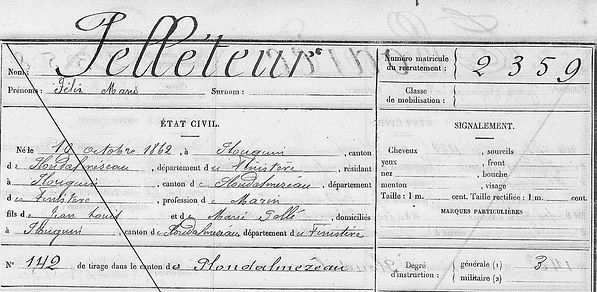 Nom: Pelléteur
Prénoms: Félix Marie Surnom:
Numéro matricule du recrutement: 2359
Classe de mobilisation:
ÉTAT CIVIL.
Né le 10 octobre 1862, à Plouguin, canton
de Ploudalmézeau, département du Finistère, résidant
à Plouguin, canton de Ploudalmézeau, département
du Finistère, profession de Marin
fils de Jean Louis et de Marie Jollé, domiciliés
à Plouguin, canton de Ploudalmézeau département du Finistère
N° 142 de tirage dans le canton de Ploudalmezeau
SIGNALEMENT.
Cheveux , sourcils
yeux , front
nez , bouche
menton , visage
Taille : 1 m. cent. Taille rectifiée : 1 m. cent.
MARQUES PARTICULIÈRES
Degré d'instruction : générale (1) 3
militaire (2)